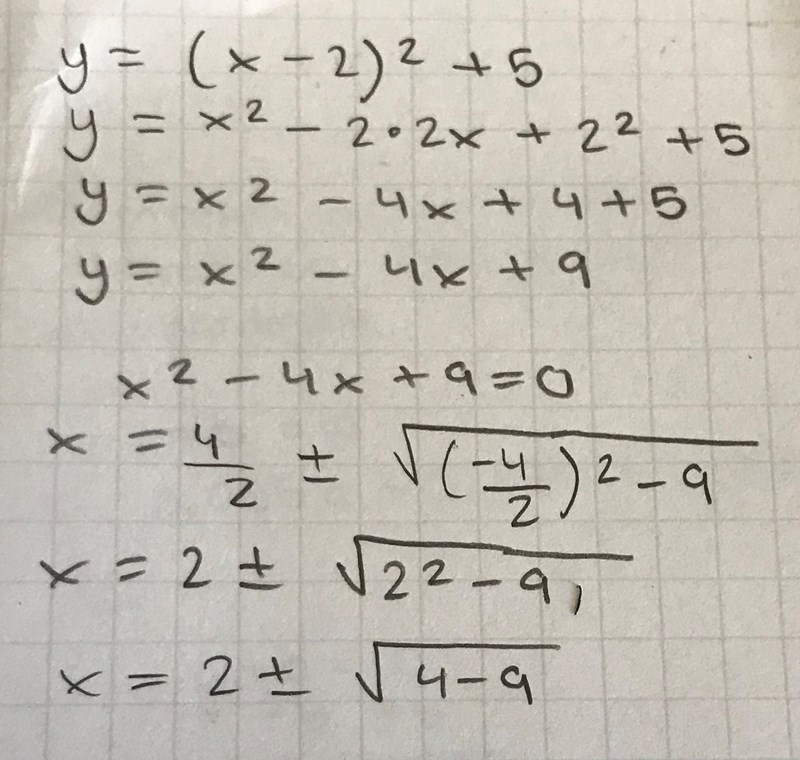 y = (x - 2)² + 5
y = x² - 2·2x + 2² + 5
y = x² - 4x + 4 + 5
y = x² - 4x + 9
x² - 4x + 9 = 0
x = 4/2 ± √((-4/2)² - 9)
x = 2 ± √(2² - 9),
x = 2 ± √(4 - 9)